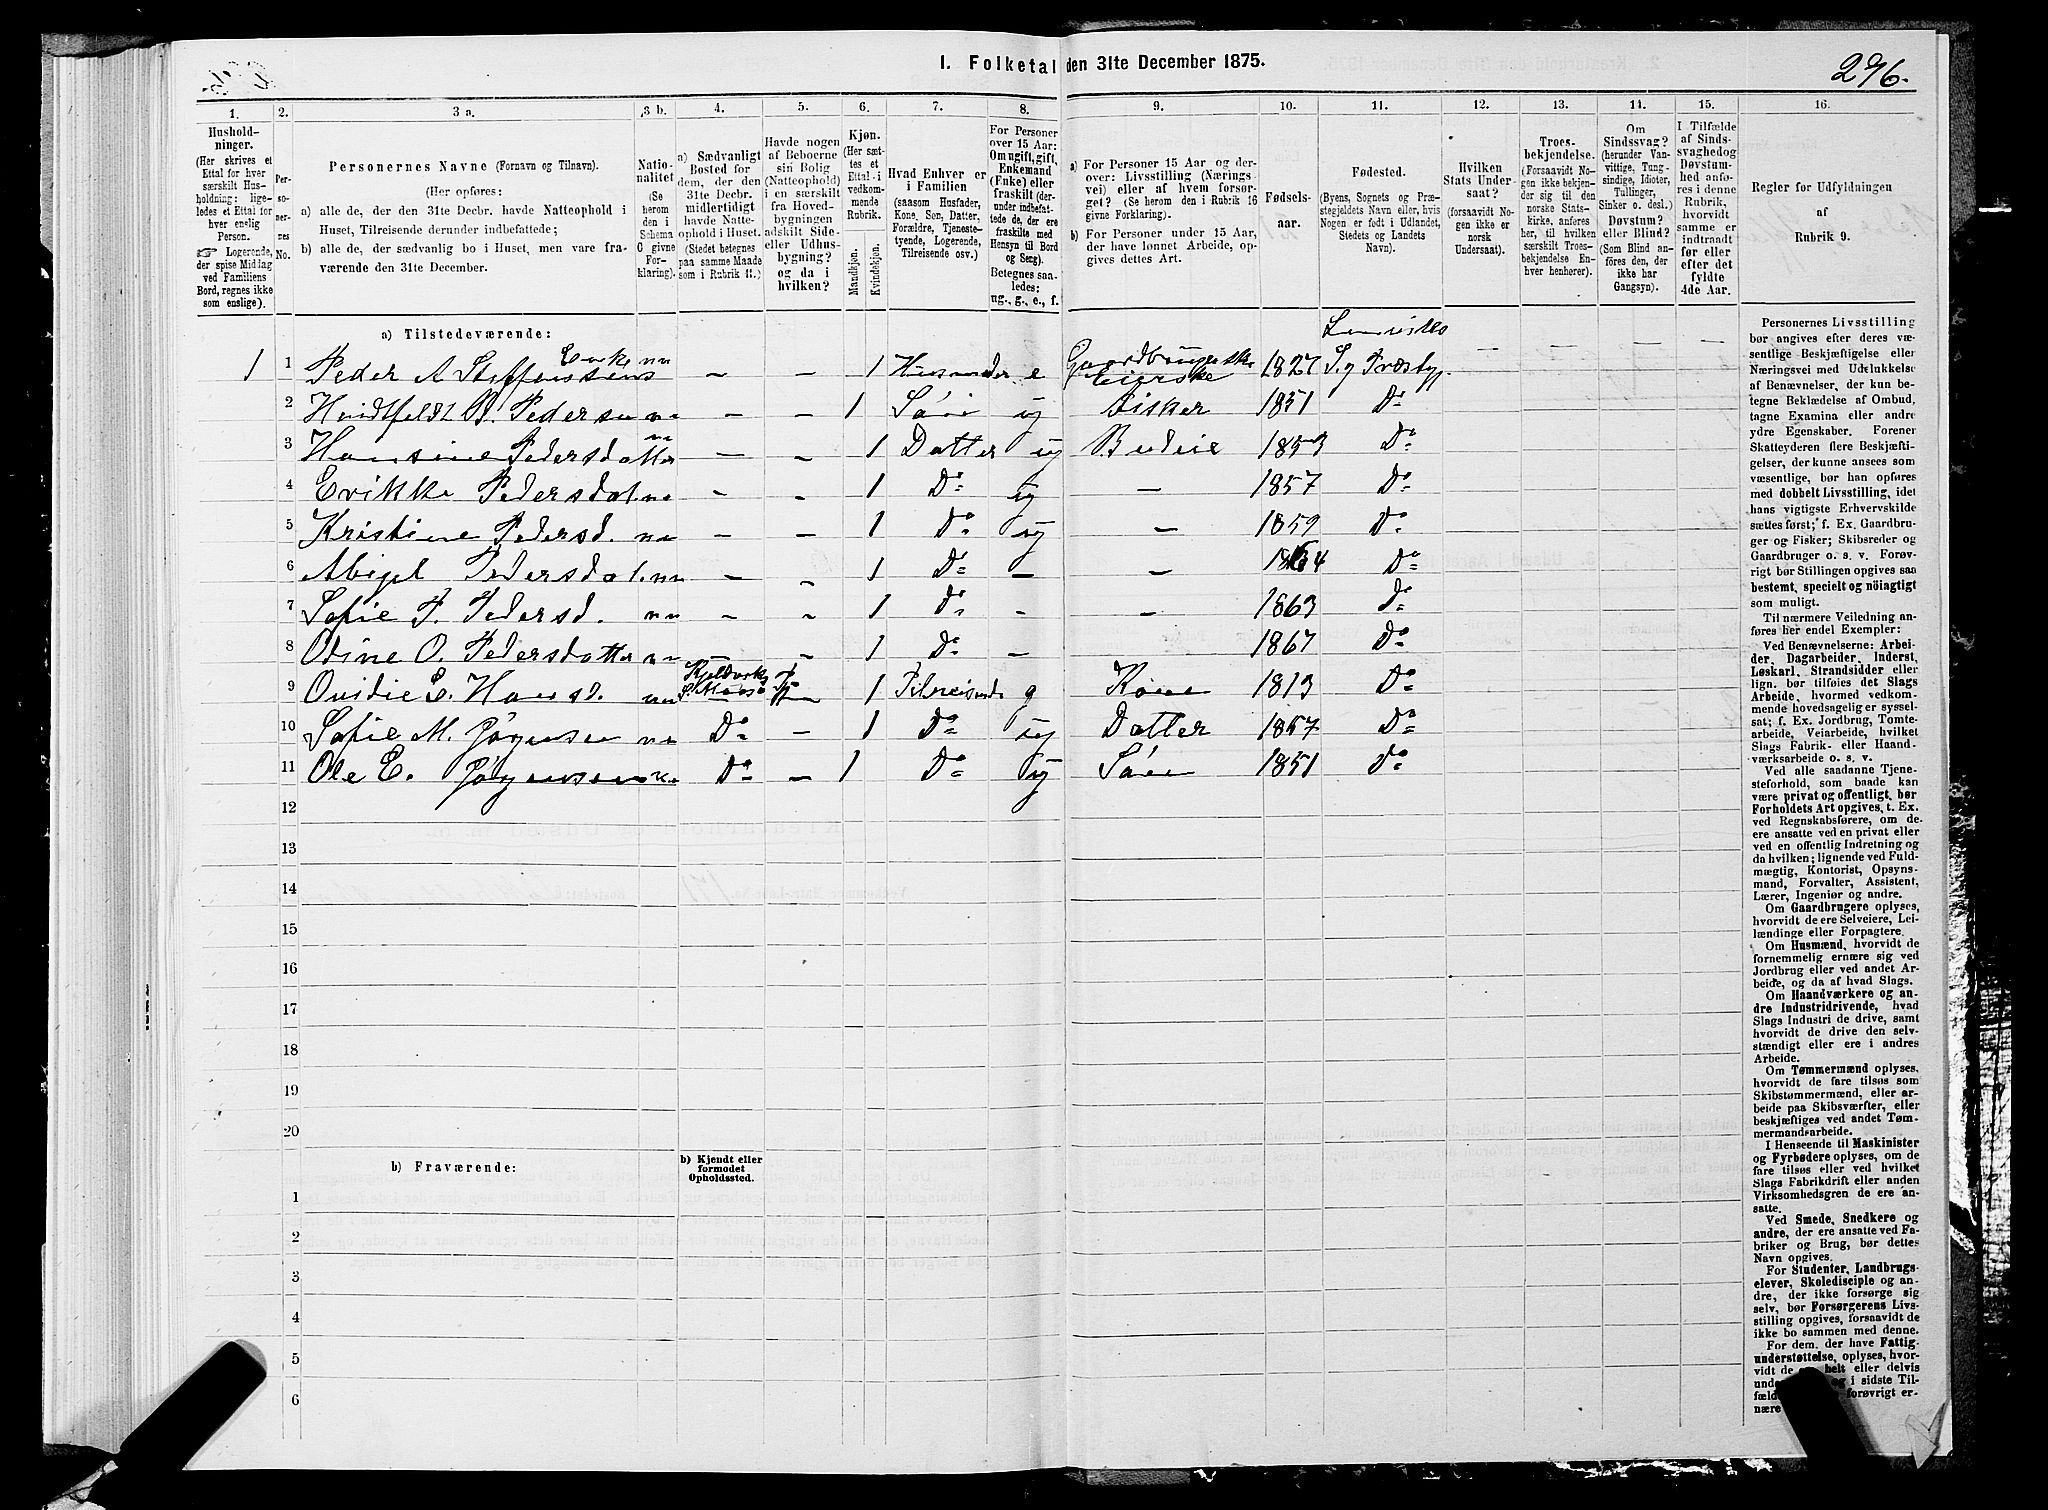 1. Folketal den 31te December 1875.
296.
1. 2. 3 a. 3 b. 4. 5. 6. 7. 8. 9. 10. 11. 12. 13. 11. 15. 16.
Hushold-
ninger.
(Her skrives et
Ettal for hver
særskilt Hus-
holdning; lige-
ledes et Ettal for
hver enslig
Person.
☞ Logerende,
der spise Middag
ved Familiens
Bord, regnes ikke
som enslige).
Per-
so-
ner-
nes
No.
Personernes Navne (Fornavn og Tilnavn).
(Her opføres:
a) alle de, der den 31te Decbr. havde Natteophold i
Huset, Tilreisende derunder indbefattede;
b) alle de, der sædvanlig bo i Huset, men vare fra-
værende den 31te December.
Natio-
nalitet
(Se
herom
den i
Schema
C givne
For-
klaring).
a) Sædvanligt
Bosted for
dem, der den
31te Decbr.
midlertidigt
havde Natte-
ophold i Huset.
(Stedet betegnes
paa samme Maade
som i Rubrik 11.)
Havde nogen
af Beboerne
sin Bolig
(Natteophold)
i en særskilt
fra Hoved-
bygningen
adskilt Side-
eller Udhus-
bygning?
og da i
hvilken?
Kjøn.
(Her sæt-
tes et
Ettal i
vedkom-
mende
Rubrik.
Mandkjøn.
Kvindekjøn.
Hvad Enhver er
i Familien
(saasom Husfader,
Kone, Søn, Datter,
Forældre, Tjeneste-
tyende, Logerende,
Tilreisende osv.)
For Personer
over 15 Aar:
Om ugift, gift,
Enkemand
(Enke) eller
fraskilt (der-
under indbefat-
tede de, der ere
fraskilte med
Hensyn til Bord
og Seng).
Betegnes saa-
ledes:
ug., g., e., f.
a) For Personer 15 Aar og der-
over: Livsstilling (Nærings-
vei) eller af hvem forsør-
get? (Se herom den i Rubrik 16
givne Forklaring).
b) For Personer under 15 Aar,
der have lønnet Arbeide, op-
gives dettes Art.
Fødsels-
aar.
Fødested.
(Byens, Sognets og Præ-
stegjeldets Navn eller, hvis
Nogen er født i Udlandet,
Stedets og Landets
Navn).
Hvilken
Stats Under-
saat?
(forsaavidt No-
gen ikke er
norsk
Undersaat).
Troes-
bekjendelse.
(Forsaavidt No-
gen ikke bekjen-
der sig til den
norske Stats-
kirke, anføres
her, til hvilken
særskilt Troes-
bekjendelse En-
hver henhører).
Om
Sindssvag?
(herunder Van-
vittige, Tung-
sindige, Idioter,
Tullinger,
Sinker o. desl.)
Døvstum?
eller Blind?
(Som Blind an-
føres den, der
ikke har
Gangsyn).
I Tilfælde
af Sinds-
svaghed og
Døvstum-
hed anfø-
res i denne
Rubrik,
hvorvidt
samme er
indtraadt
før eller
efter det
fyldte
4de Aar.
Regler for Udfyldningen
af
Rubrik 9.
a) Tilstedeværende:
1 1 Peder A Steffensens Enke nn – – 1 e Gaardbrugerske 1827 S. og Præstgj.
2 Hvidtfeldt B. Pedersen nn – – 1 Søn ug Fisker 1851 Do
3 Hansine Pedersdatter nn – – 1 Datter ug Budeie 1853 Do
4 Erikke Pedersdat. nn – – 1 Do ug – 1857 Do
5 Kristine Pedersd. nn – – 1 Do ug – 1859 Do
6 Abigel Pedersdat. nn – – 1 Do – – 1864 Do
7 Sofie P. Pedersd. nn – – 1 Do – – 1863 Do
8 Odine O. Pedersdatter nn – – 1 Do – 1867 Do
9 Ovidie E. Hansd. nn 1 Tilreisende g Kone 1813 Do
10 Sofie M. Jørgensen nn Do – 1 Do ug Datter 1857 Do
11 Ole E. Jørgensen nn Do – 1 Do ug Søn 1851 Do
12
13
14
15
16
17
18
19
20
b) Fraværende:
b) Kjendt eller
formodet
Opholdssted.
1
2
3
4
5
6
Personernes Livsstilling
bør angives efter deres væ-
sentlige Beskjæftigelse eller
Næringsvei med Udelukkelse
af Benævnelser, der kun be-
tegne Beklædelse af Ombud,
tagne Examina eller andre
ydre Egenskaber. Forener
Skatteyderen flere Beskjæfti-
gelser, der kunne ansees som
væsentlige, bør han opføres
med dobbelt Livsstilling, idet
hans vigtigste Erhvervskilde
sættes først; f. Ex. Gaardbru-
ger og Fisker; Skibsreder og
Gaardbruger o. s. v. Forøv-
rigt bør Stillingen opgives saa
bestemt, specielt og nøiagtigt
som muligt.
Til nærmere Veiledning an-
føres her endel Exempler:
Ved Benævnelserne: Arbei-
der, Dagarbeider, Inderst,
Løskarl, Strandsidder eller
lign. bør tilføies det Slags
Arbeide, hvormed vedkom-
mende hovedsagelig er syssel-
sat; f. Ex. Jordbrug, Tomte-
arbeide, Veiarbeide, hvilket
Slags Fabrik- eller Haand-
værksarbeide o. s. v.
Ved alle saadanne Tjene-
steforhold, som baade kan
være privat og offentligt, bør
Forholdets Art opgives, t. Ex.
ved Regnskabsførere, om de-
ere ansatte ved en privat eller
ved en offentlig Indretning og
da hvilken; lignende ved Fuld-
mægtig, Kontorist, Opsyns-
mand, Forvalter, Assistent,
Lærer, Ingeniør og andre.
Om Gaardbrugere oplyses,
hvorvidt de ere Selveiere, Lei-
lændinge eller Forpagtere.
Om Husmænd, hvorvidt de
fornemmelig ernære sig ved
Jordbrug eller ved andet Ar-
beide, og da af hvad Slags.
Om Haandværkere og an-
dre Industridrivende, hvad
Slags Industri de drive, samt
hvorvidt de drive den selv-
stændigt eller ere i andres
Arbeide.
Om Tømmermænd oplyses,
hvorvidt de fare tilsøs som
Skibstømmermænd, eller ar-
beide paa Skibsværfter, eller
beskjæftiges ved andet Tøm-
mermandsarbeide.
I Henseende til Maskinister
og Fyrbødere oplyses, om de
fare tilsøs eller ved hvilket
Slags Fabrikdrift eller anden
Virksomhedsgren de ere an-
satte.
Ved Smede, Snedkere og
andre, der ere ansatte ved Fa-
briker og Brug, bør dettes
Navn opgives.
For Studenter, Landbrugs-
elever, Skoledisciple og an-
dre, der ikke forsørge sig
selv, bør Forsørgerens Livs-
stilling opgives, forsaavidt de
ikke bo sammen med denne.
For dem, der have Fattig-
understøttelse, oplyses, hvor-
vidt de helt eller delvis
og i sidste Til-
forøvrigt er-
nære